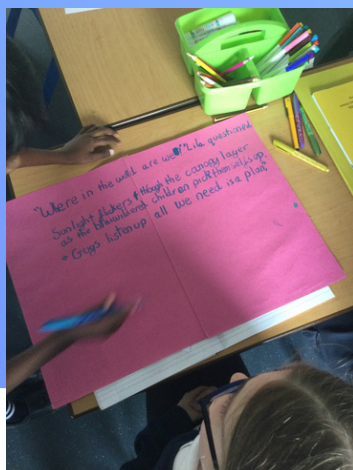 "Where in the wild are we?" Lila questioned
Sunlight flickers though the canopy layer
as the bewildered children pick themselfs up.
• Guys listen up all we need is a plan"